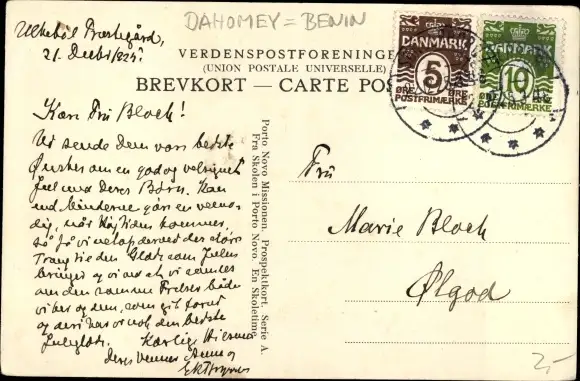 DAHOMEY = BENIN
VERDENSPOSTFORENINGE
(UNION POSTALE UNIVERSELLE)
BREVKORT — CARTE POS
DANMARK
5
ØRE ØRE
POSTFRIMÆRKE
DANMARK
10
POSTFRIMÆRKE
Præstegård,
21.
Kære Fru Bloch!
Vi sende Dem vore bedste
Ønsker om en god og velsignet
Jul med Deres Børn. Kan
end Minderne gøre en vemo-
dig, når Højtiden kommer,
så få vi netop derved des større
Trang til den Glæde som Julen
bringer og vi ved at vi samles
om den samme Frelser både
vi her og dem, som gik forud
og deri har vi nok den bedste
Juleglæde. Kærlig Hilsen
Deres Venner Anne og
Porto Novo Missionen. Prospektkort. Serie A.
Fra Skolen i Porto Novo. En Skoletime.
Fru
Marie Bloch
Ølgod
2,-